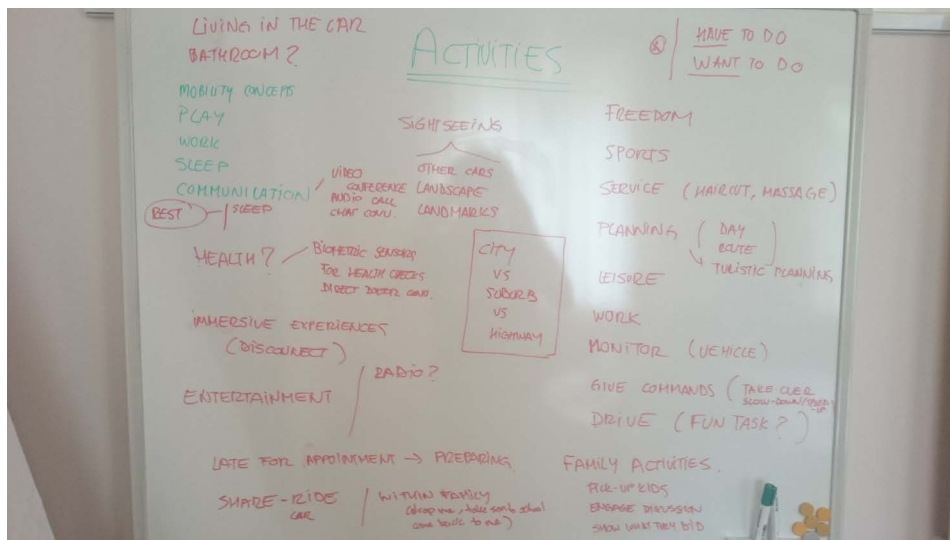 LIVING IN THE CAR
BATHROOM?
ACTIVITIES
HAVE TO DO
WANT TO DO
MOBILITY CONCEPTS
PLAY
WORK
SLEEP
COMMUNICATION
VIDEO
CONFERENCE
AUDIO CALL
CHAT CONV.
BEST
SLEEP
SIGHTSEEING
OTHER CARS
LANDSCAPE
LANDMARKS
HEALTH?
BIOMETRIC SENSORS
FOR HEALTH CHECKS
DIRECT DOCTOR CONV.
CITY
VS
SUBURB
VS
HIGHWAY
IMMERSIVE EXPERIENCES
(DISCONNECT)
ENTERTAINMENT
RADIO?
LATE FOR APPOINTMENT → PREPARING
SHARE-RIDE
CAR
WITHIN FAMILY
(drop me, take son to school
come back to me)
FREEDOM
SPORTS
SERVICE (HAIRCUT, MASSAGE)
PLANNING (DAY
ROUTE)
TURISTIC PLANNING
LEISURE
WORK
MONITOR (VEHICLE)
GIVE COMMANDS (TAKE-OVER
SLOW-DOWN/SPEED-UP
DRIVE (FUN TASK?)
FAMILY ACTIVITIES.
PICK-UP KIDS
ENGAGE DISCUSSION
SHOW WHAT THEY DID